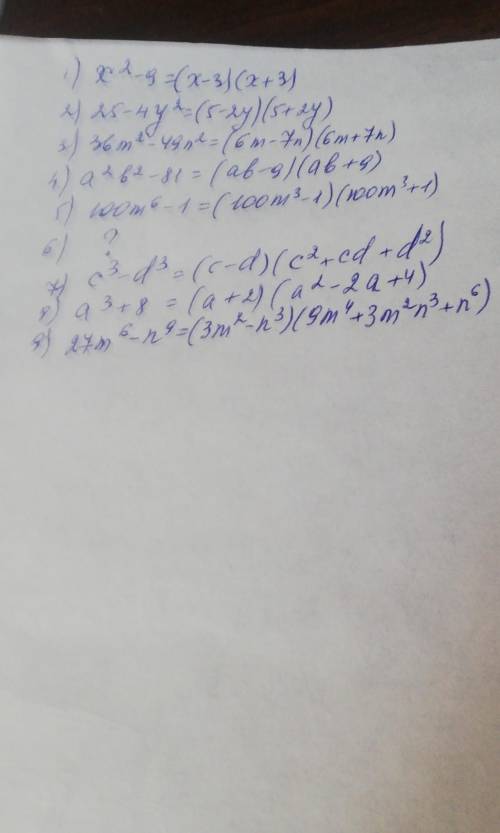 1) x²-9=(x-3)(x+3)
2) 25-4y²=(5-2y)(5+2y)
3) 36m²-49n²=(6m-7n)(6m+7n)
4) a²b²-81=(ab-9)(ab+9)
5) 100m⁶-1=(100m³-1)(100m³+1)
6) ?
7) c³-d³=(c-d)(c²+cd+d²)
8) a³+8=(a+2)(a²-2a+4)
9) 27m⁶-n⁹=(3m²-n³)(9m⁴+3m²n³+n⁶)